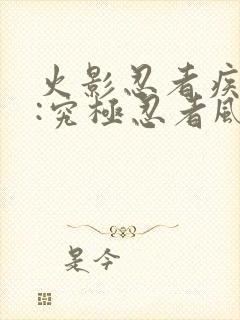 火影忍者疾
:究極忍者風
是今